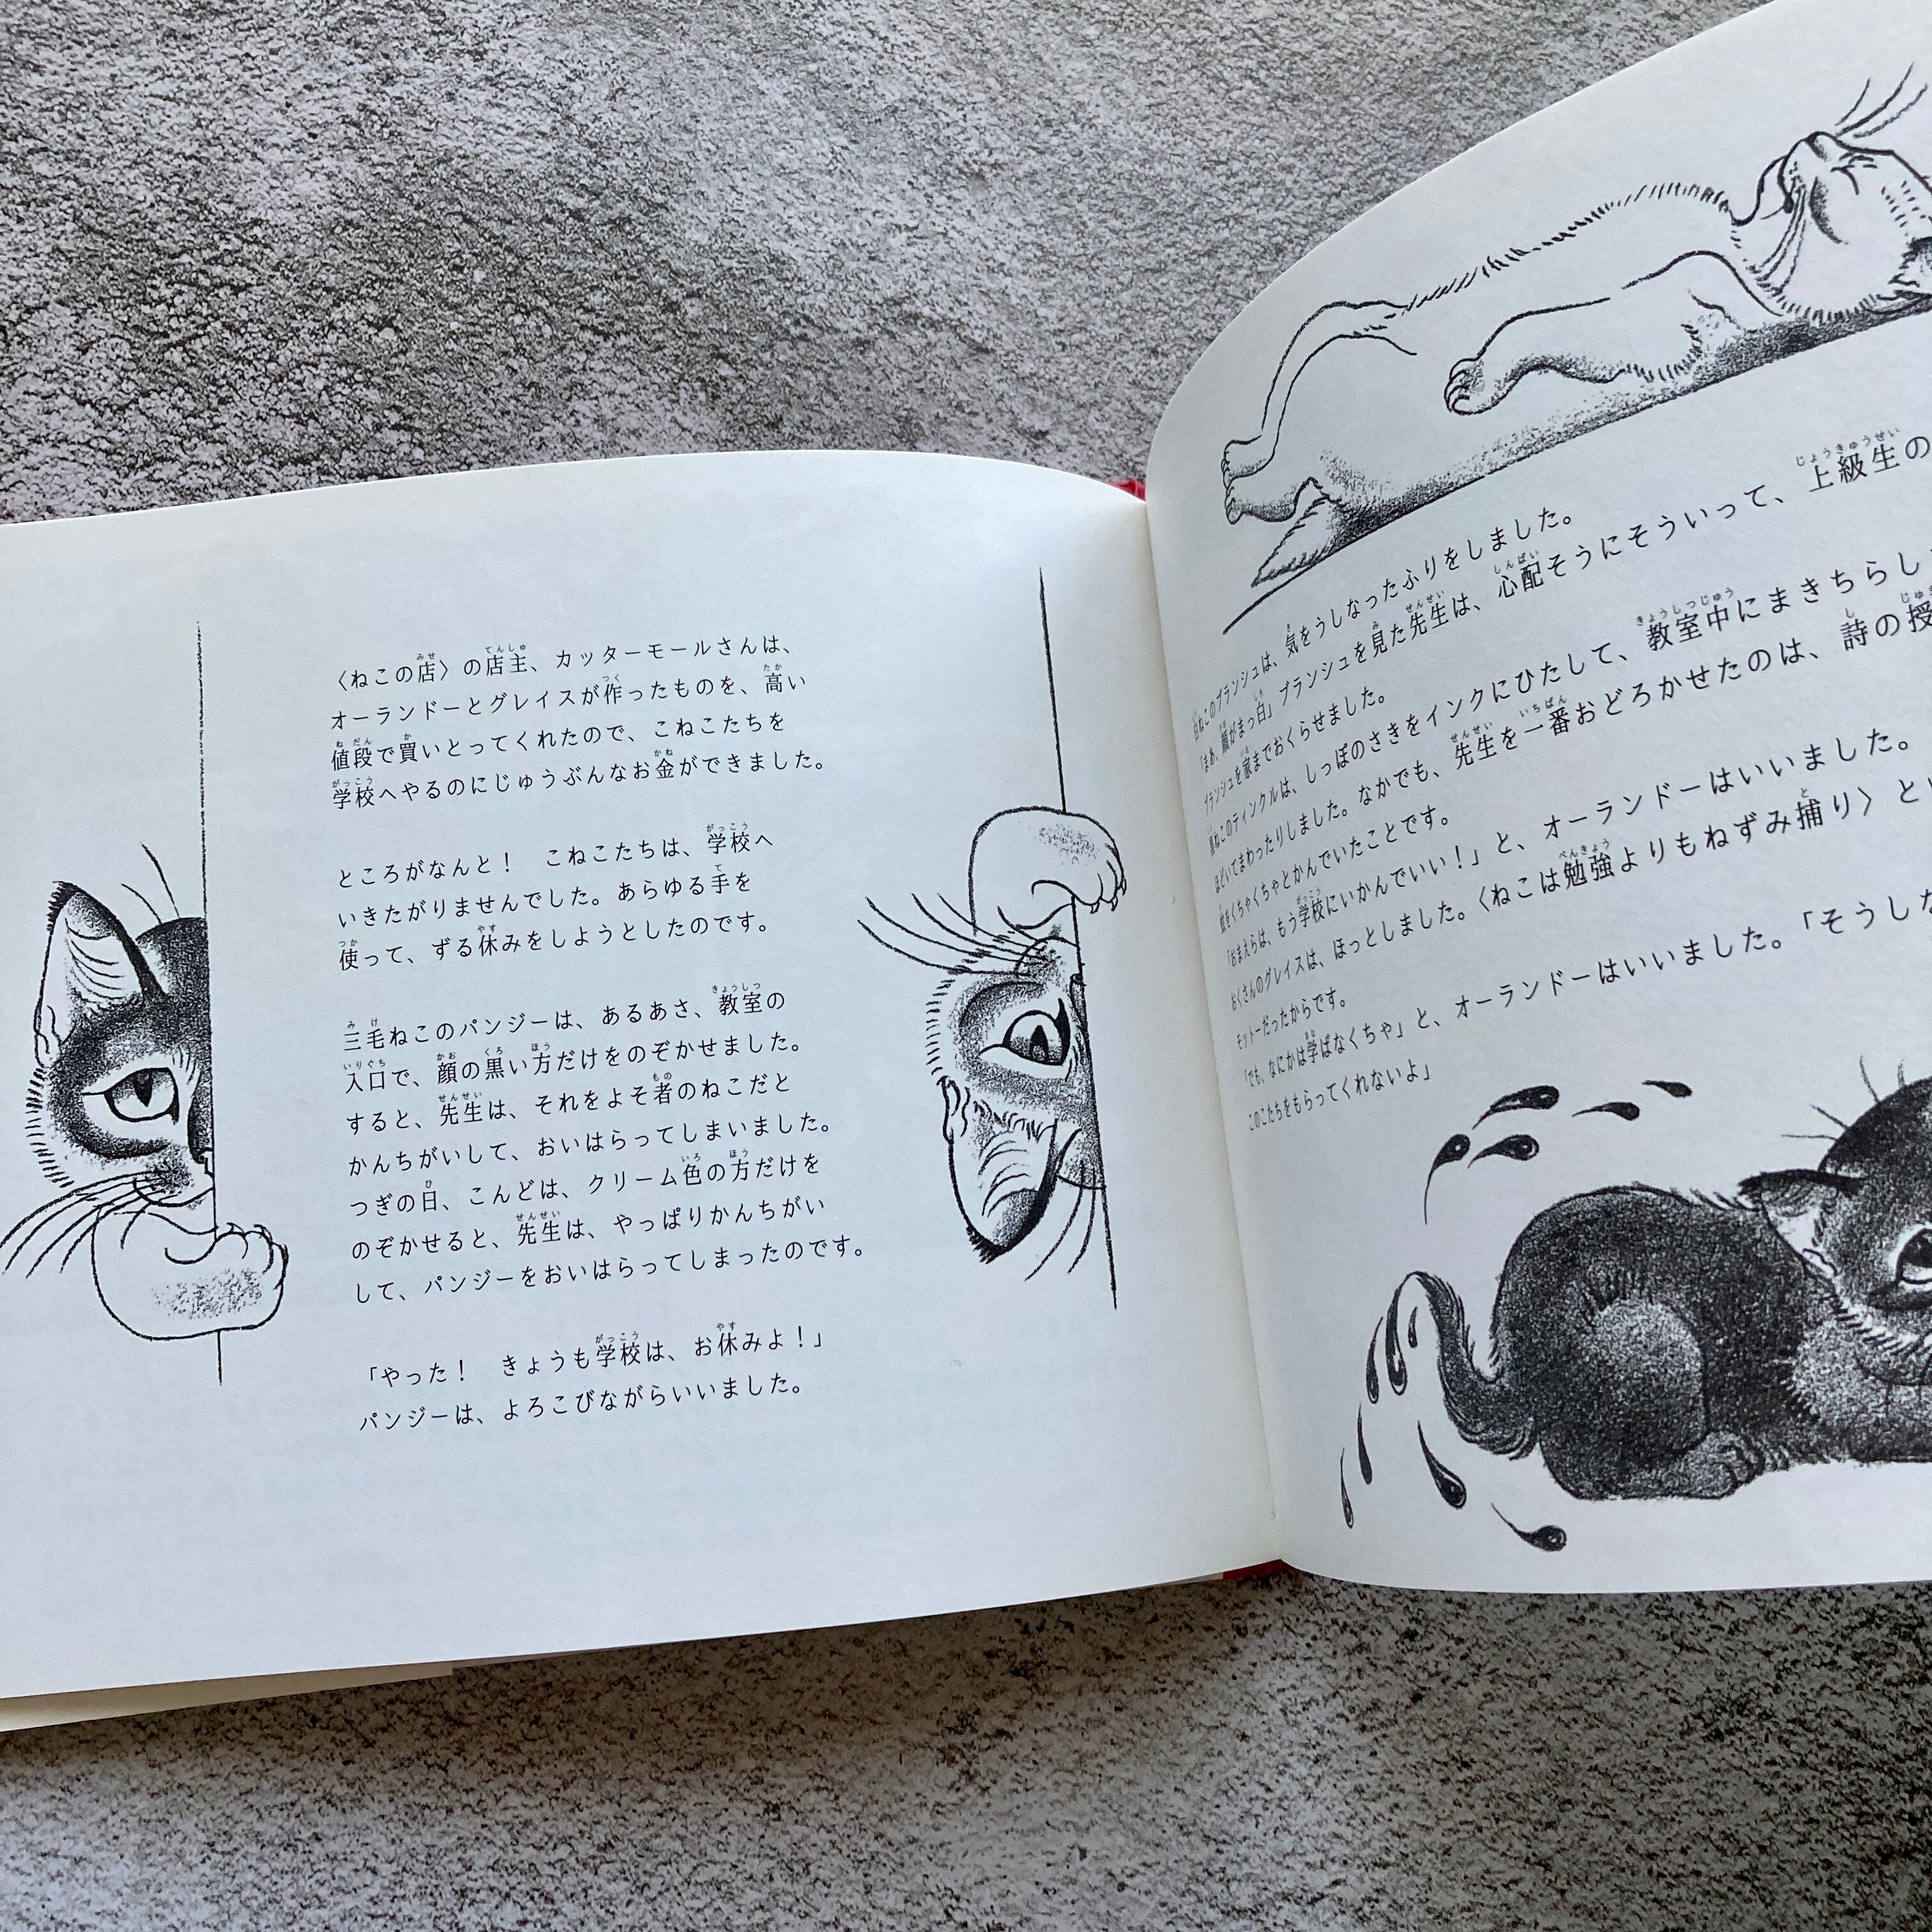 〈ねこの店〉の店主、カッターモールさんは、
オーランドーとグレイスが作ったものを、高い
値段で買いとってくれたので、こねこたちを
学校へやるのにじゅうぶんなお金ができました。
ところがなんと！　こねこたちは、学校へ
いきたがりませんでした。あらゆる手を
使って、ずる休みをしようとしたのです。
三毛ねこのパンジーは、あるあさ、教室の
入口で、顔の黒い方だけをのぞかせました。
すると、先生は、それをよそ者のねこだと
かんちがいして、おいはらってしまいました。
つぎの日、こんどは、クリーム色の方だけを
のぞかせると、先生は、やっぱりかんちがい
して、パンジーをおいはらってしまったのです。
「やった！　きょうも学校は、お休みよ！」
パンジーは、よろこびながらいいました。
白ねこのブランシュは、気をうしなったふりをしました。
「まあ、顔がまっ白」ブランシュを見た先生は、心配そうにそういって、上級生の
ブランシュを家までおくらせました。
黒ねこのティンクルは、しっぽのさきをインクにひたして、教室中にまきちらし
ほどいてまわったりしました。なかでも、先生を一番おどろかせたのは、詩の授
をくちゃくちゃとかんでいたことです。
「おまえらは、もう学校にいかんでいい！」と、オーランドーはいいました。
おくさんのグレイスは、ほっとしました。〈ねこは勉強よりもねずみ捕り〉とい
モットーだったからです。
「でも、なにかは学ばなくちゃ」と、オーランドーはいいました。「そうしな
このこたちをもらってくれないよ」